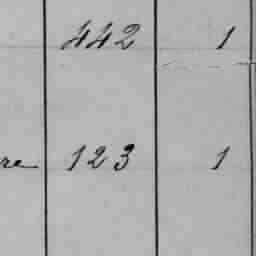 442 1
re 123 1